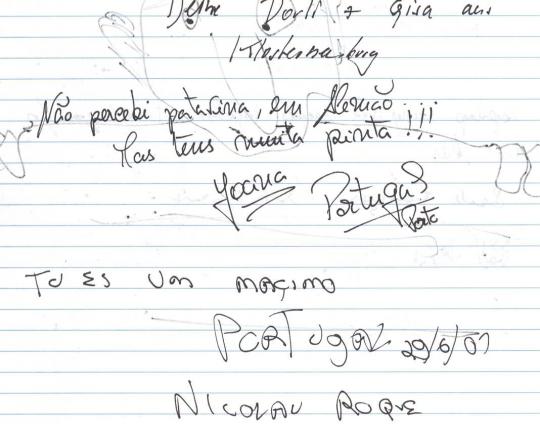 Deine Dorli + Gisa aus
Klosterneuburg
Não percebi patavina, em Alemão
Mas tens muita pinta!!!
Joana Portugal
Porto
TU ES UM MAÇIMO
PORTUGAL 29/6/07
NICOLAU ROQUE